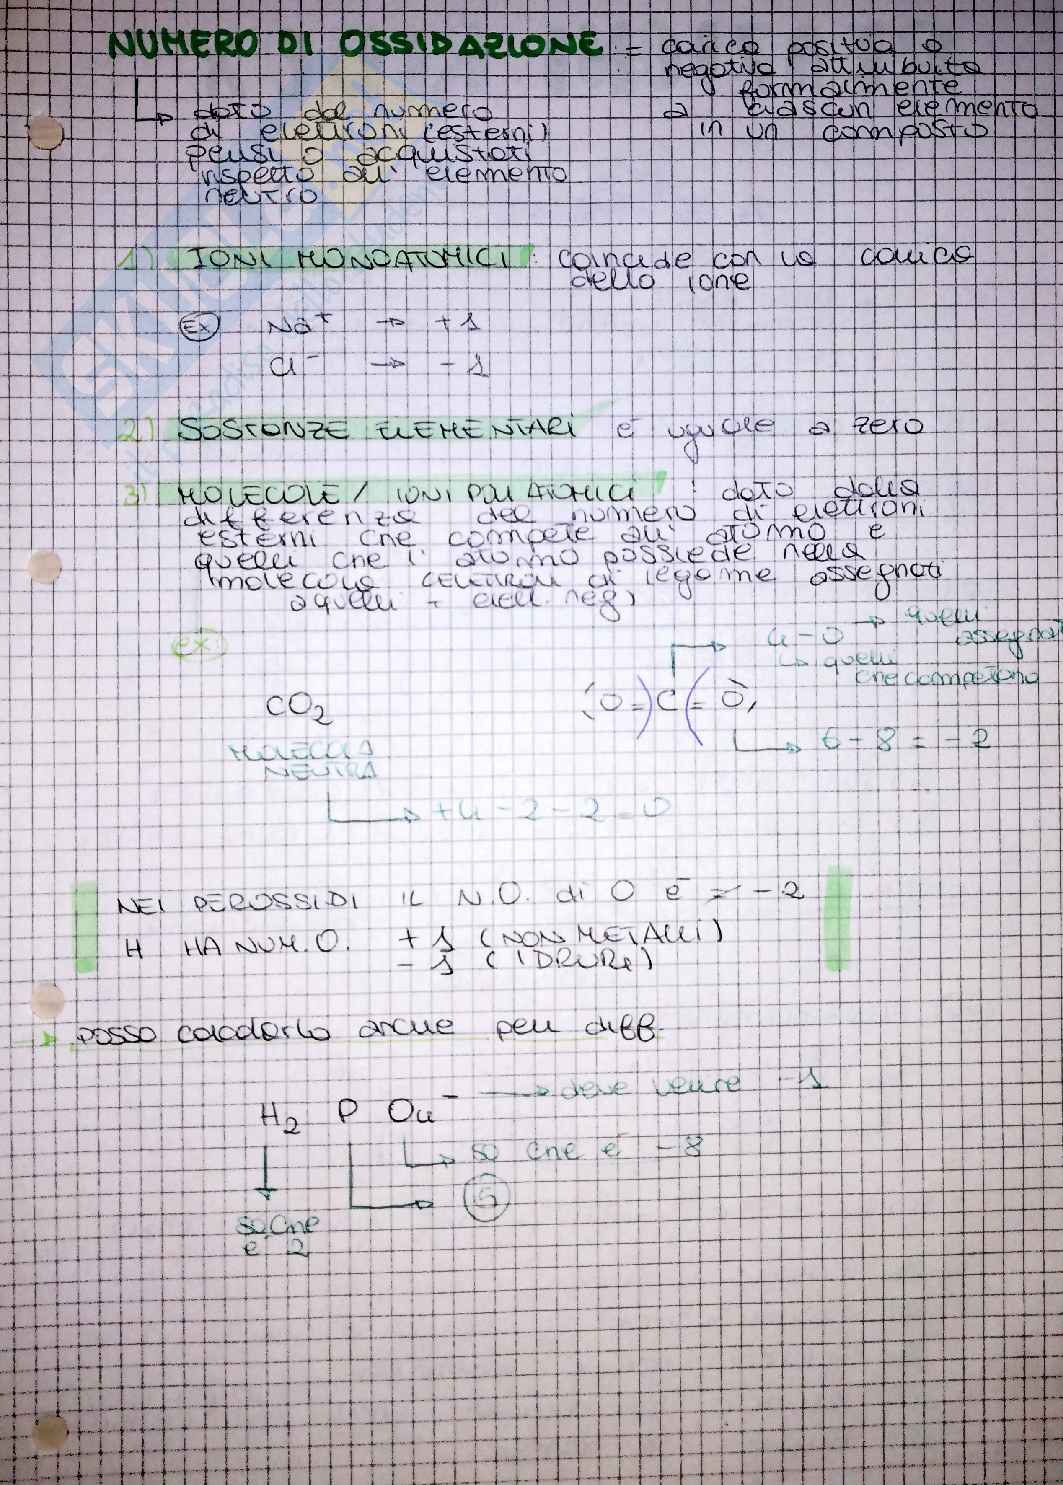 NUMERO DI OSSIDAZIONE = carica positiva o
negativa attribuita
formalmente
a ciascun elemento
in un composto
dato dal numero
di elettroni (esterni)
persi o acquistati
rispetto all' elemento
neutro
1) IONI MONOATOMICI : coincide con la carica
dello ione
Ex Na⁺ → +1
Cl⁻ → -1
2) SOSTANZE ELEMENTARI è uguale a zero
3) MOLECOLE / IONI POLIATOMICI : dato dalla
differenza del numero di elettroni
esterni che compete all' atomo e
quelli che l' atomo possiede nella
molecola (elettroni di legame assegnati
a quelli + elett. neg)
ex:
4-0 → quelli
assegnati
↳ quelli
che competono
CO₂ (O=)C(=O)
6-8 = -2
MOLECOLA
NEUTRA
+4 -2 -2 = 0
NEI PEROSSIDI IL N.O. di O è ≠ -2
H HA NUM. O. +1 (NON METALLI)
-1 (IDRURI)
→ posso calcolarlo anche per diff.
H₂ P O₄⁻ → deve venire -1
so che è -8
5
so che
è 2